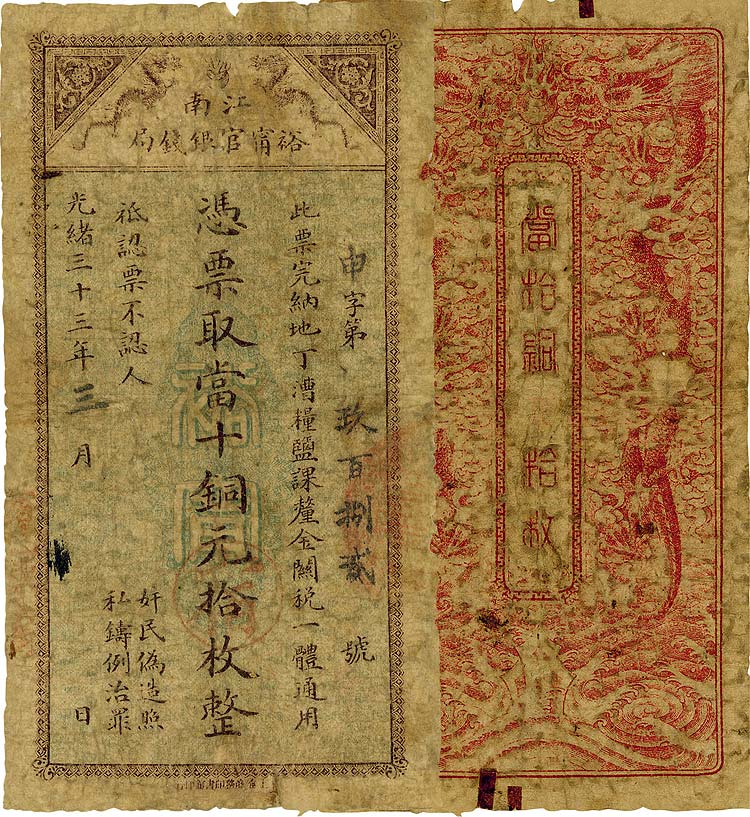 江南
裕甯官銀錢局
申字第玖百捌貳號
此票完納地丁漕糧鹽課釐金關稅一體通用
憑票取當十銅元拾枚整
祗認票不認人
奸民偽造照
私鑄例治罪
光緒三十三年三月日
當拾銅拾枚